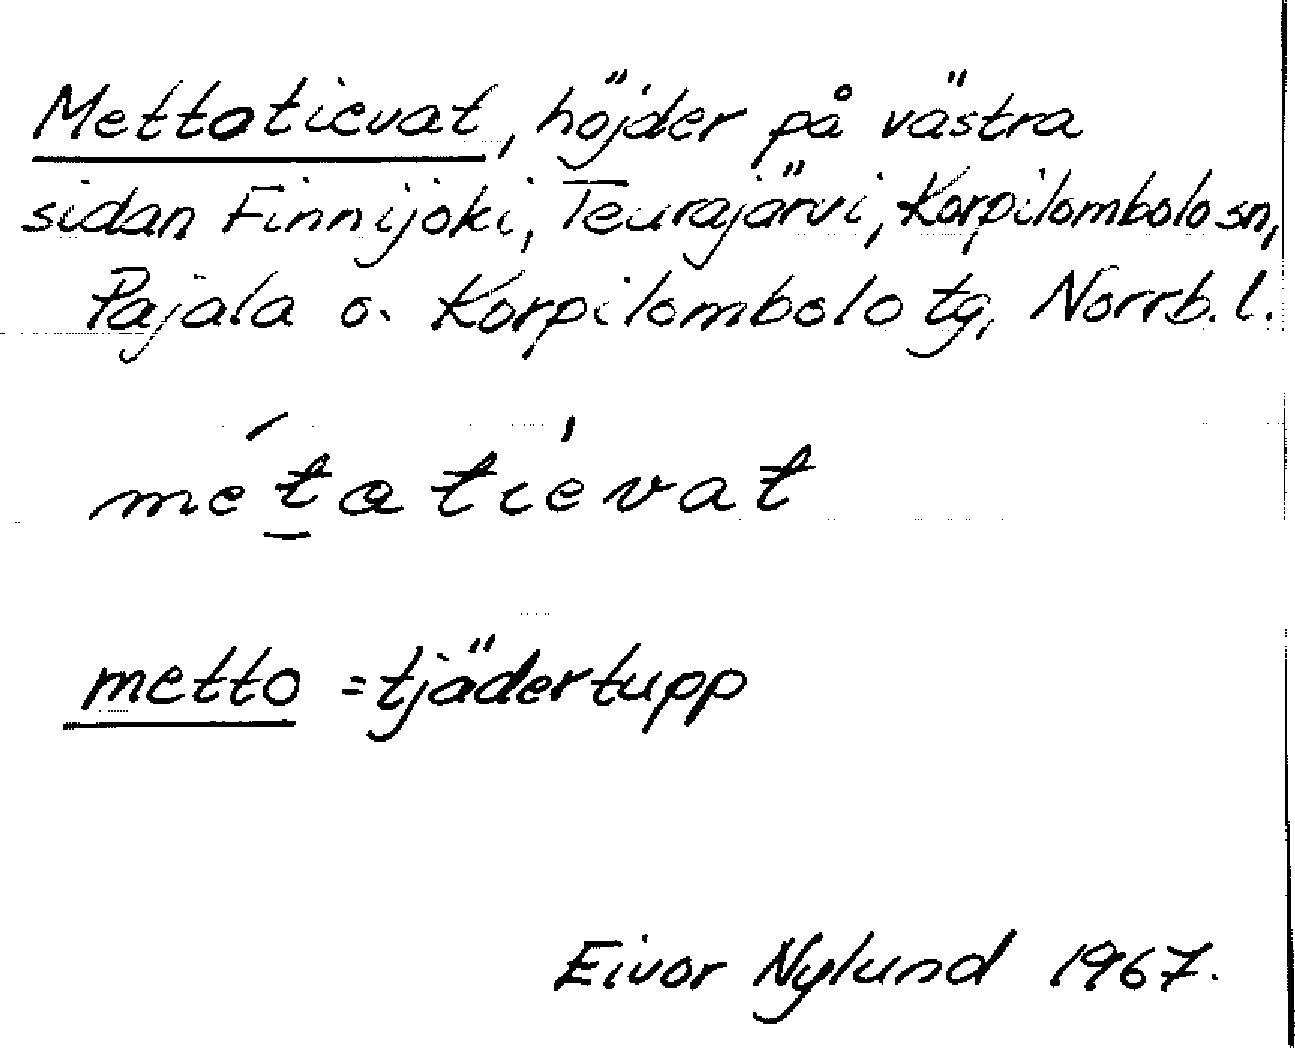 Mettotievat, höjder på västra
sidan Finnijoki, Teurajärvi, Korpilombolo sn,
Pajala o. Korpilombolo tg, Norrb. l.
métatìevat
metto = tjädertupp
Eivor Nylund 1967.